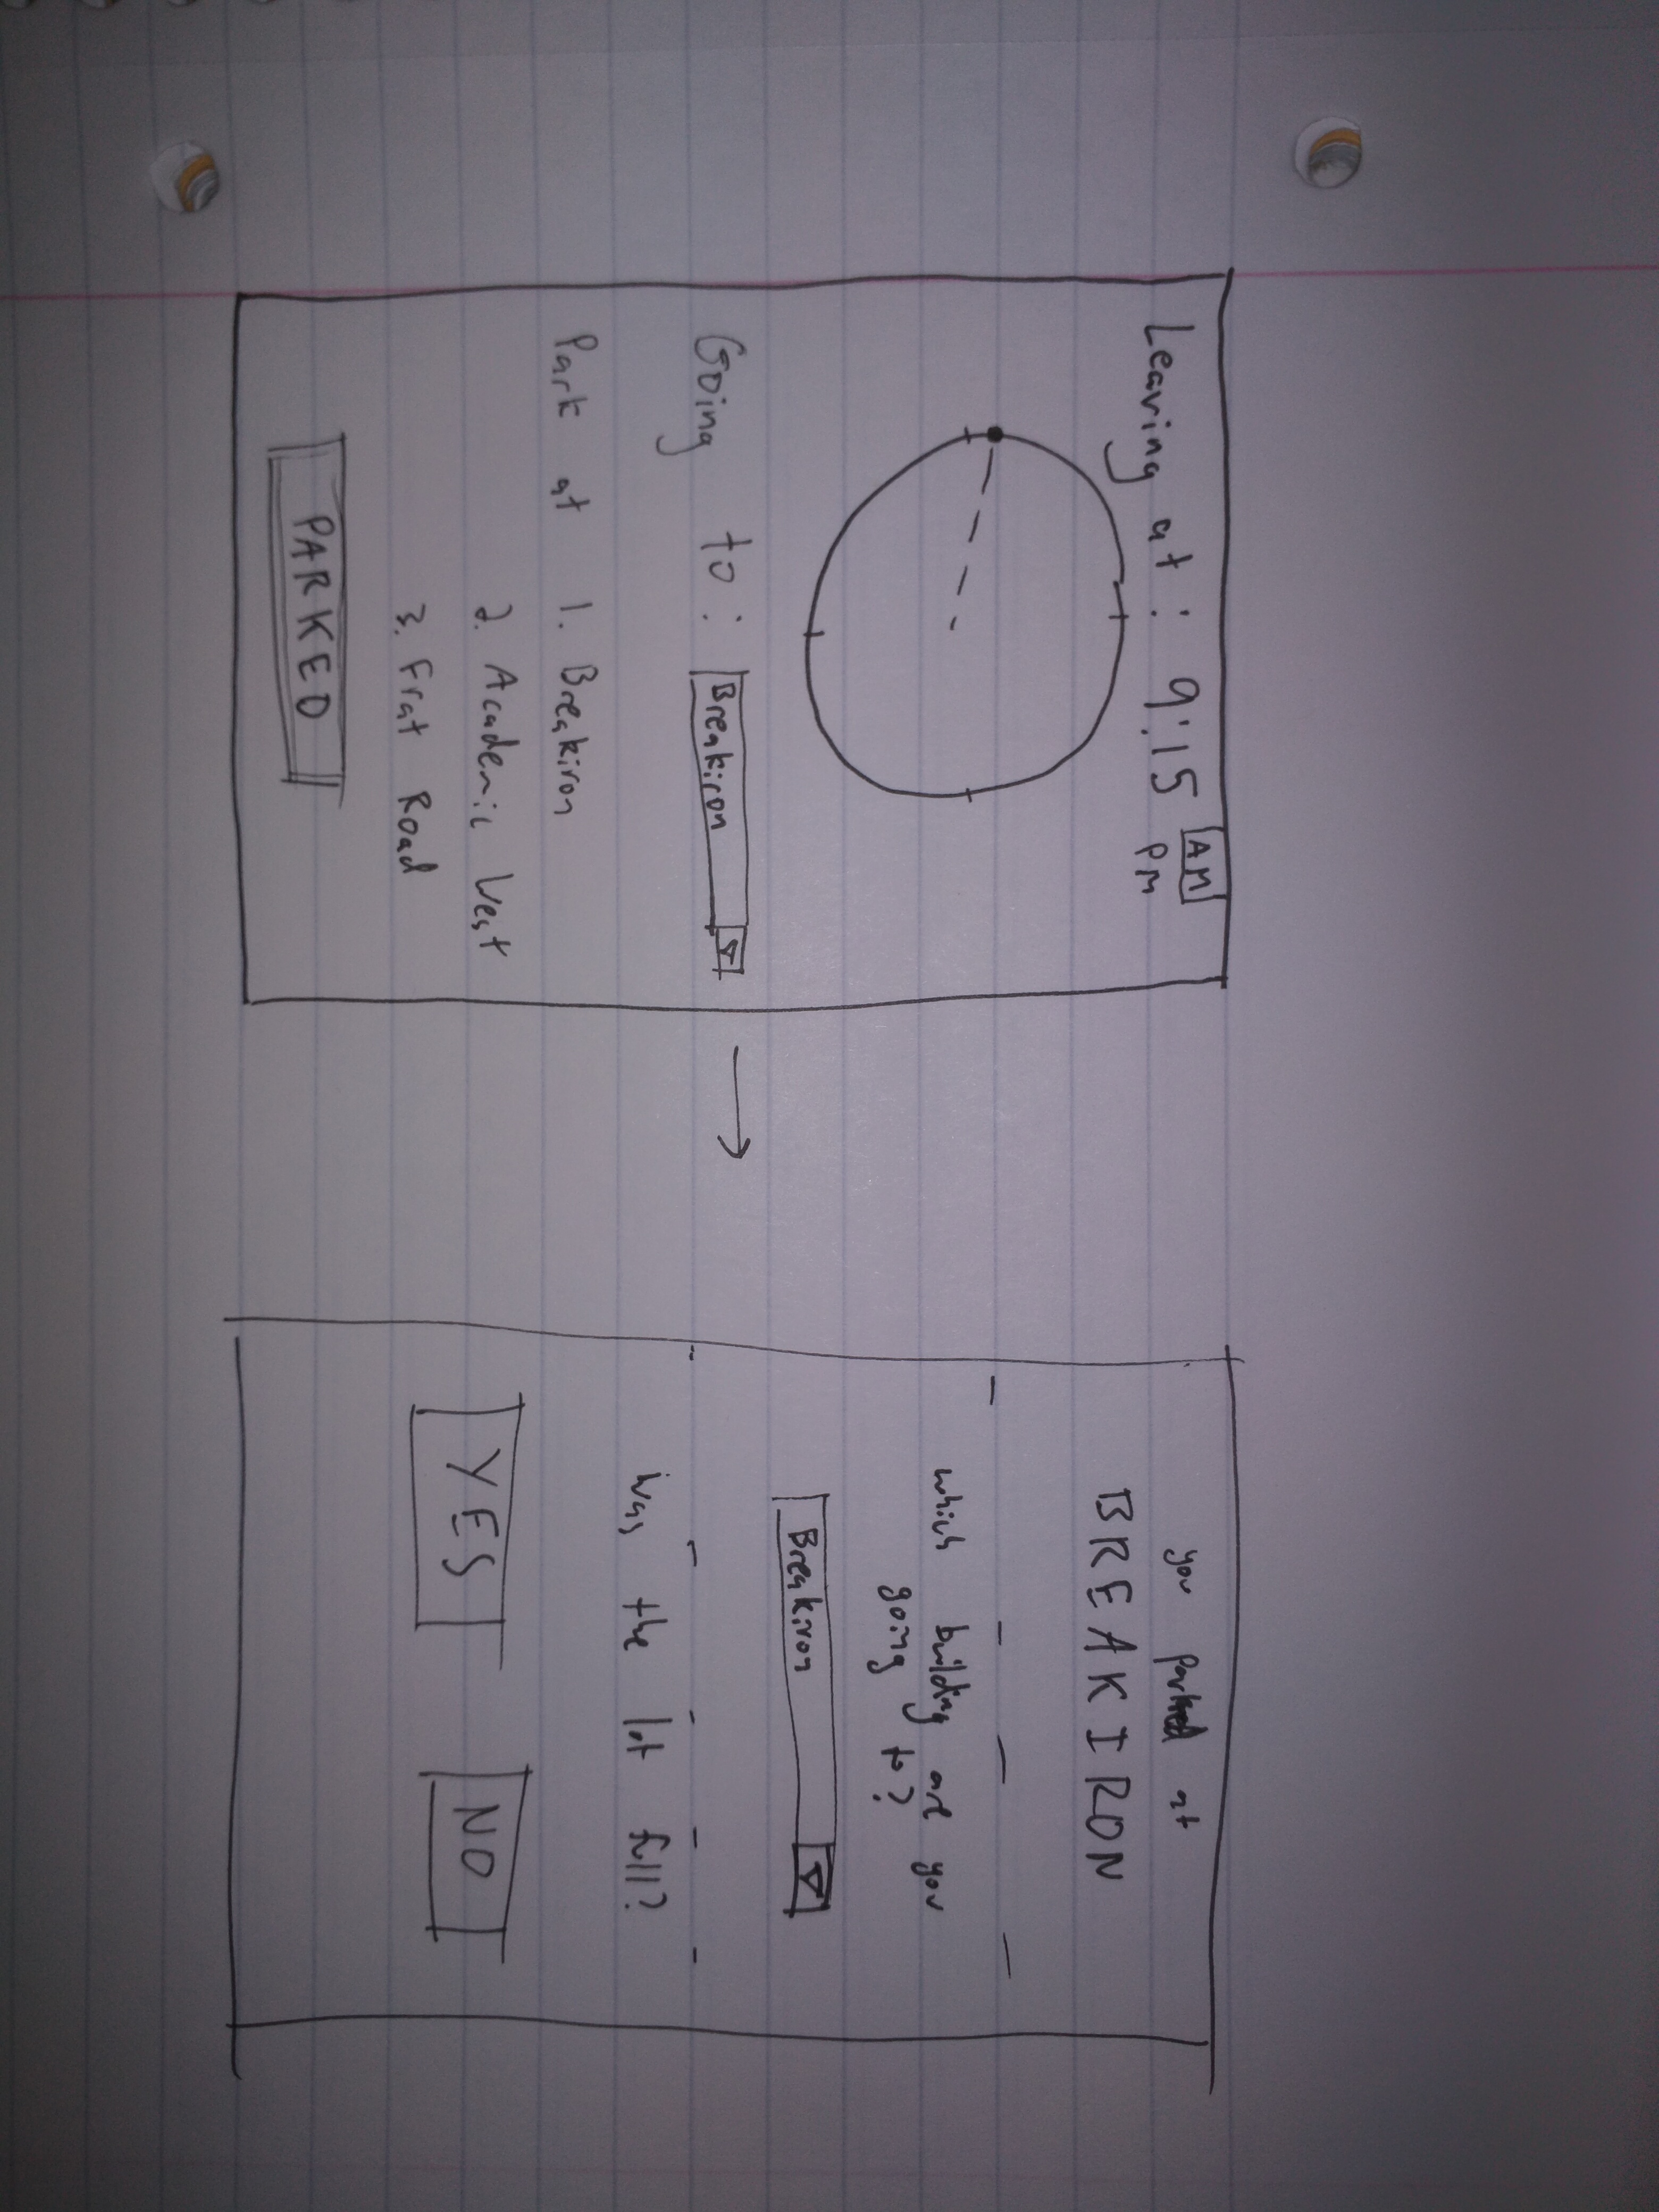 Leaving at: 9:15 AM
PM
Going to: Breakiron
Park at 1. Breakiron
2. Academic West
3. Frat Road
PARKED
you parked at
BREAKIRON
which building are you
going to?
Breakiron
Was the lot full?
YES NO